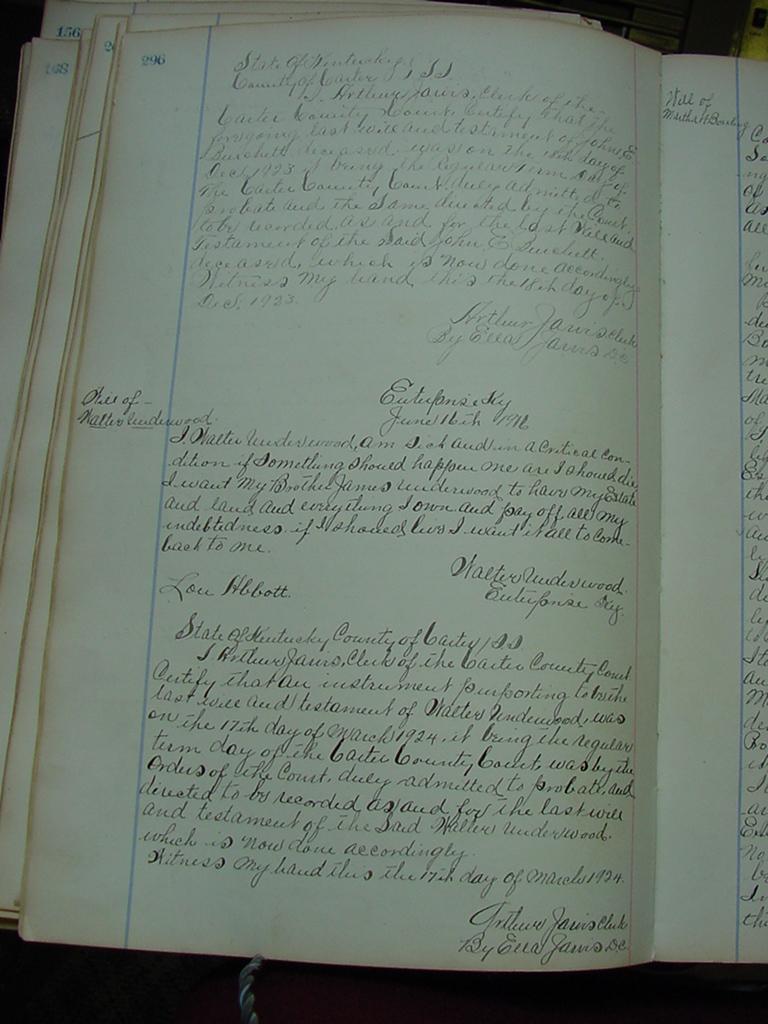 156
168
296
State of Kentucky
County of Carter } SS
I, Arthur Jarvis, Clerk of the
Carter County Court, Certify that the
foregoing last will and testament of John E
Burchett deceased was on the 18th day of
Dec. 1923 it being the regular term day of
the Carter County Court duly admitted to
probate and the same directed by the Court
to be recorded as and for the last Will and
Testament of the said John E Burchett
deceased, which is now done accordingly
Witness my hand this the 18th day of
Dec. 1923.
Arthur Jarvis, Clerk
By Ella Jarvis D.C
Will of
Walter Underwood.
Enterprise Ky
June 16th
I Walter Underwood, am sick and in a critical con-
dition if something should happen me are I should die
I want my Brother James Underwood to have my Estate
and land and everything I own and pay off all my
indebtedness if I should live I want it all to come
back to me.
Walter Underwood.
Enterprise Ky.
Lou Abbott.
State of Kentucky County of Carter } SS
I Arthur Jarvis, Clerk of the Carter County Court
Certify that an instrument purporting to be the
last will and testament of Walter Underwood, was
on the 17th day of March 1924, it being the regular
term day of the Carter County Court, was by the
Orders of the Court, duly admitted to probate, and
directed to be recorded as and for the last will
and testament of the said Walter Underwood.
which is now done accordingly.
Witness my hand this the 17th day of March 1924.
Arthur Jarvis Clerk
By Ella Jarvis D.C
Will of
Martha Bowling